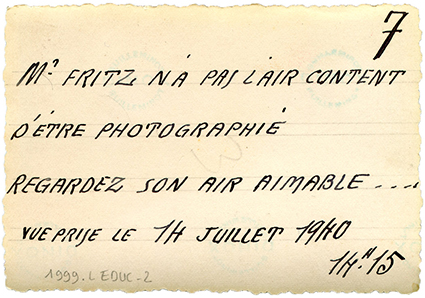 7
Mr FRITZ N'A PAS L'AIR CONTENT
D'ÊTRE PHOTOGRAPHIÉ
REGARDEZ SON AIR AIMABLE....
VUE PRISE LE 14 JUILLET 1940
14.H 15
1999.L EDUC-2